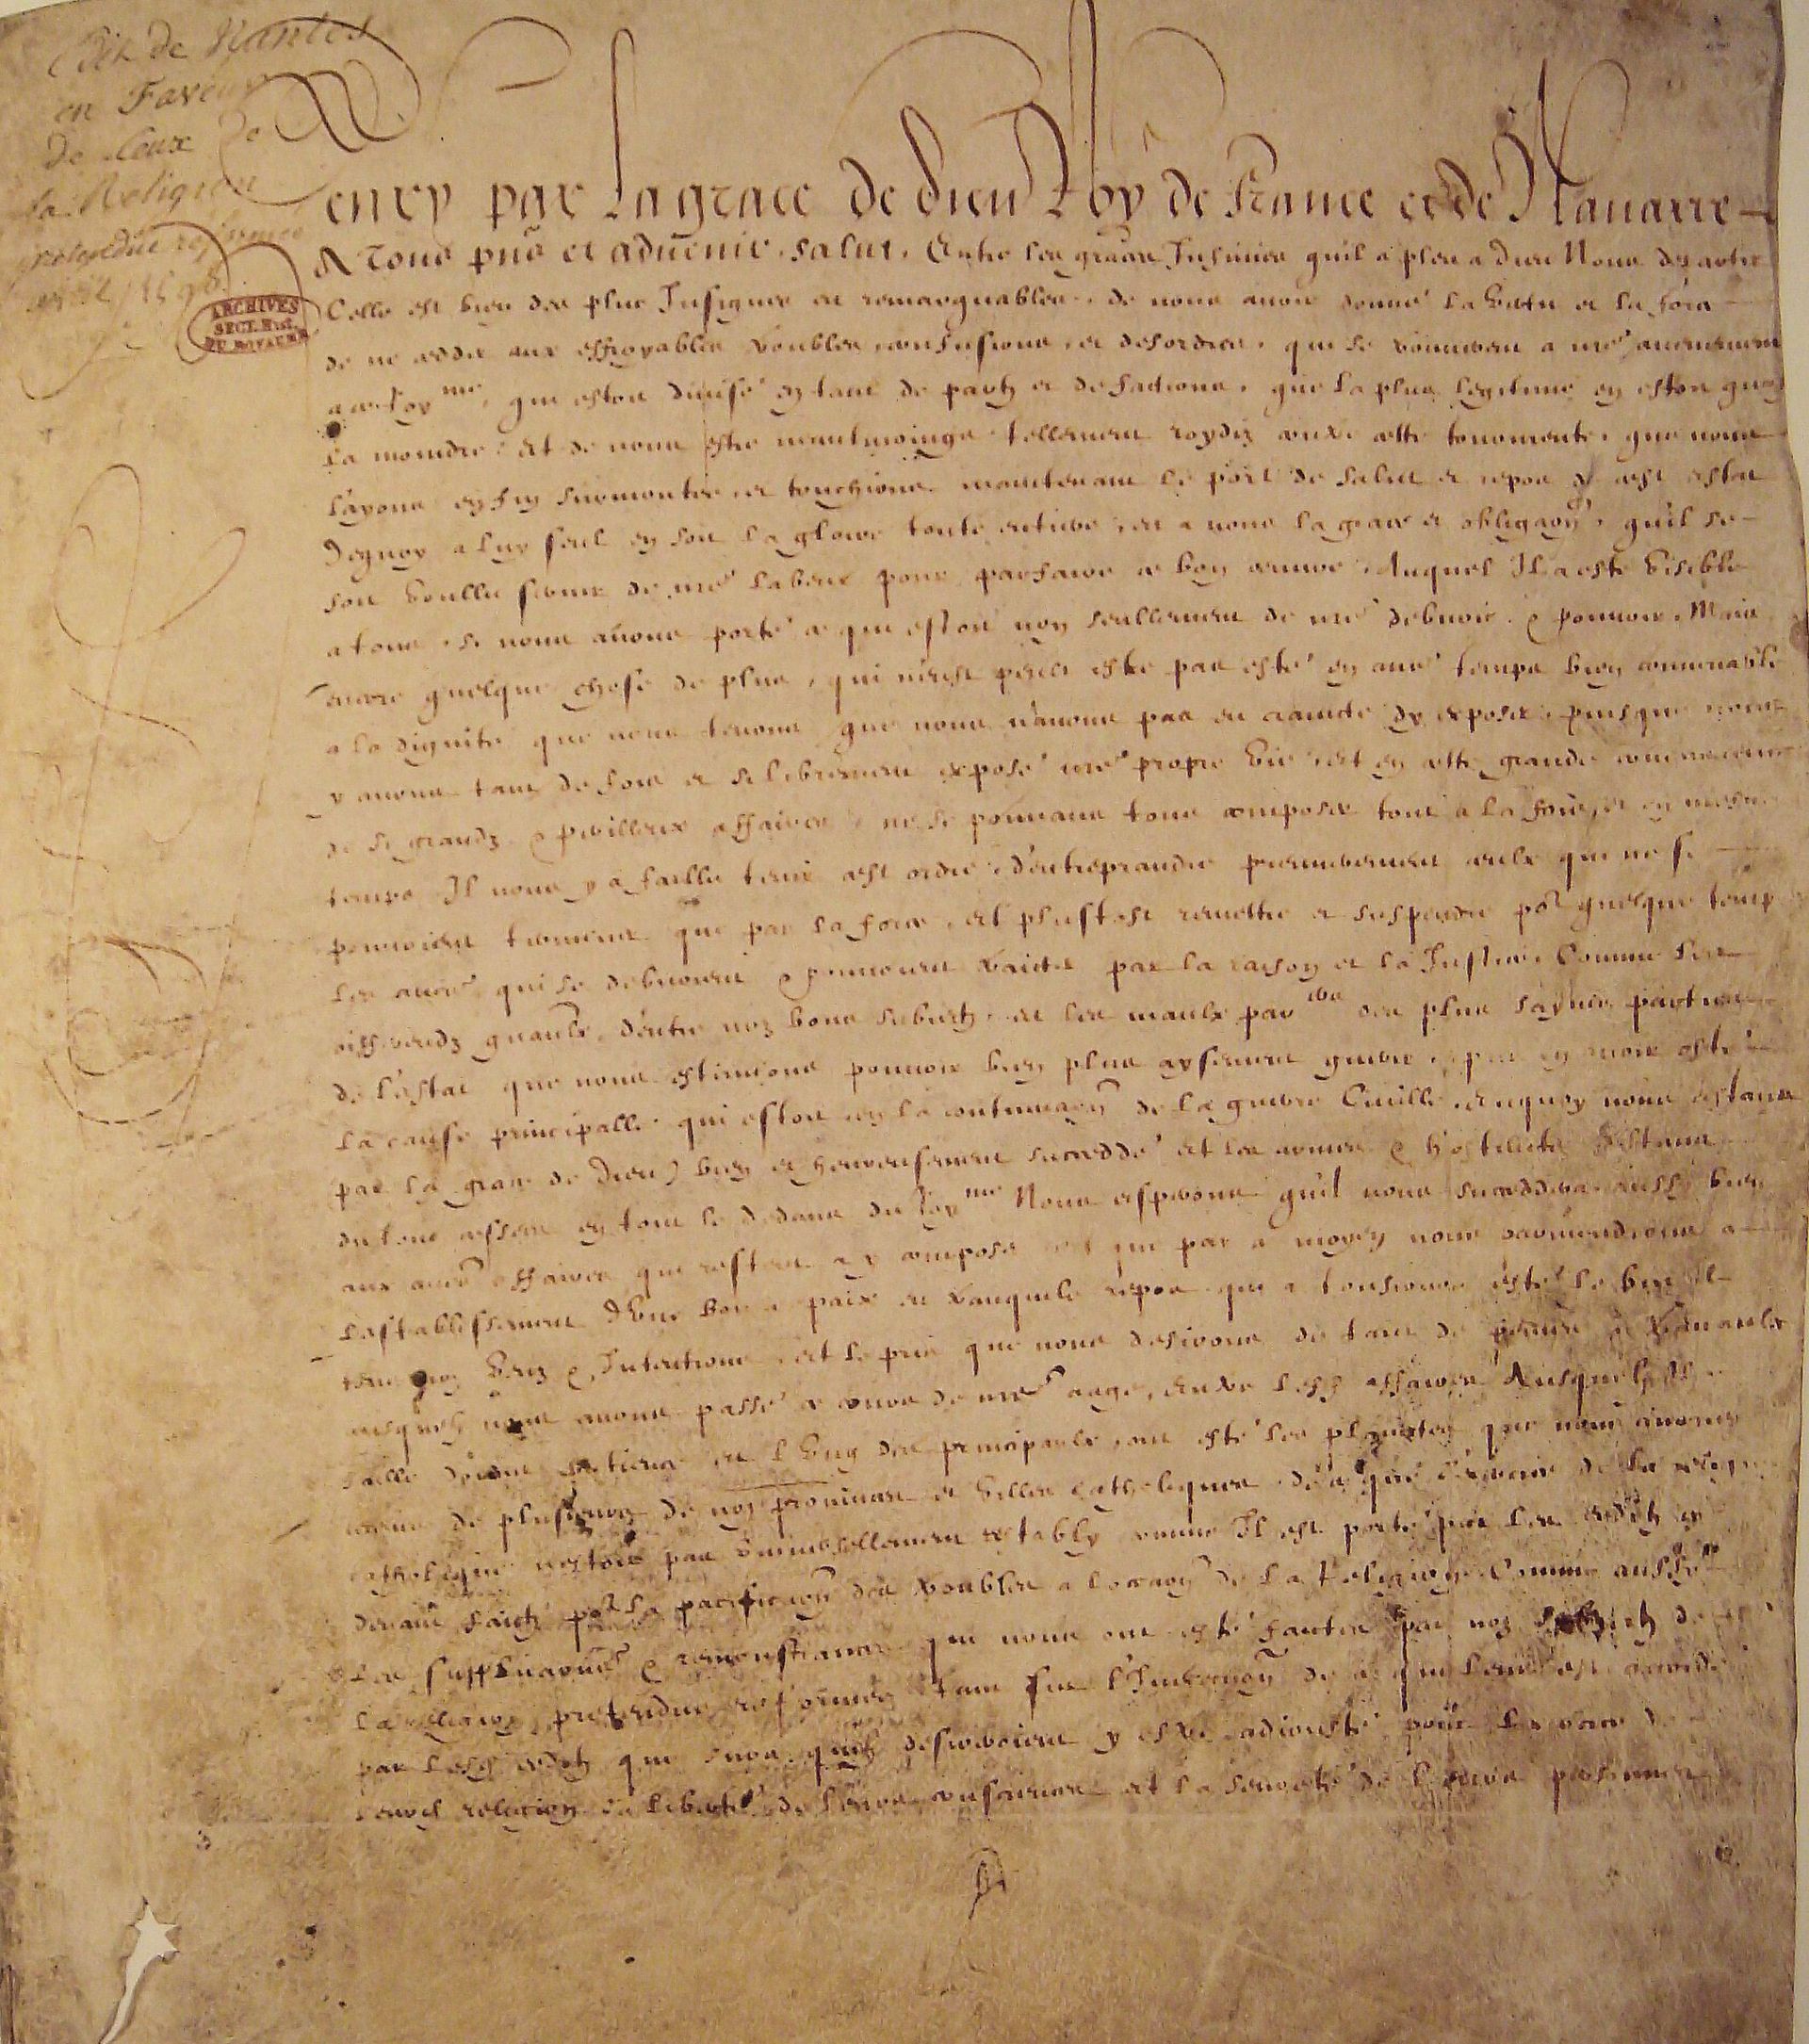 Edit de Nantes
en Faveur
de Ceux de
la Religion
pretendue reformée
ARCHIVES
SECT. HIST.
DU ROYAUME
enry par la grace de dieu Roy de france et de Nauarre
A Tous pñs et aduenir, salut. Entre les graces Infinies qu'il a pleu a dieu Nous departir
Celle est bien des plus Insignes et remarquables, de nous auoir donné la vertu et la force
de ne cedder aux effroyables troubles, confusions, et desordres, qui se trouuerent a nrẽ aduenement
a ce Royme, qui estoit diuisé en tant de partz et de factions, que la plus legitime en estoit quasi
la moindre, et de nous estre neantmoings tellement roydiz contre ceste tourmente, que nous
l'ayons enfin surmontée, et touchions maintenant le port de salut et repos de cest estat
Dequoy a luy seul en soit la gloire toute entiere, et a nous la grace et obligaõn, qu'il se
soit voullu seruir de nrẽ labeur pour parfaire ce bon œuure, Auquel Il a esté visible
a tous, si nous auons porté ce qui estoit non seullement de nrẽ debuoir & pouuoir, Mais
encore quelque chose de plus, qui n'eust peult estre pas esté en autrẽ temps bien conuenable
a la dignité que nous tenons, que nous n'auons pas eu craincte d'y exposer, puisque nous
y auons tant de fois et si librement exposé nrẽ propre vie, Et en ceste grande concurrence
de si grandz & perilleux affaires, ne se pouuans tous composer tout a la fois, et en mesme
temps Il nous y a faillu tenir cest ordre, d'entreprendre premierement ceulx qui ne se
pouuoient terminer que par la force, et plustost remettre et suspendre por quelque temps
les autrẽs qui se debuoient & pouuoient traicter par la raison et la Justice, Comme les
differendz gnaulx d'entre noz bons subiectz, et les maulx parres des plus saynes parties
de l'estat que nous estimions pouuoir bien plus aysement guerir, apres en auoir osté
la cause principalle qui estoit en la continuaõn de la guerre Ciuille, Enquoy nous estant
par la grace de Dieu) bien et heureusement succeddé et les armes & hostilitez estans
du tout cessées en tout le dedans du Royme Nous esperons qu'il nous succeddera aussy bien
aux autrẽs affaires qui restent a y composer et que par ce moyen nous paruiendrons a
l'establissement d'vne bonne paix et tranquile repos qui a tousiours esté le but de
tous noz veuz & Intentions, et le prix que nous desirons de tant de peines & trauaulx
ausquelz nous auons passé ce cours de nrẽ aage, Entre lesd affaires Ausquelz Il a
faillu donner patience, et l'vng des principaulx, ont esté les plainctes que nous auons
receues de plusieurs de noz prouinces et villes catholiques de ce que l'exercice de la religion
catholique n'estoit pas vniuersellement restably comme Il est porté par les edictz cy
deuant faictz por la pacificaõn des troubles a l'occaõn de la Religion, Comme aussi
les supplicaõns & remonstrances qui nous ont esté faictes par noz subiectz de
la religion pretendue reformée tant sur l'Inexecuõn de ce qui leur est accordé
par lesd edictz que sur ce qu'ilz desireroient y estre adiousté pour l'exercice de
leurd religion la liberté de leurs consciences et la seureté de leurs personnes